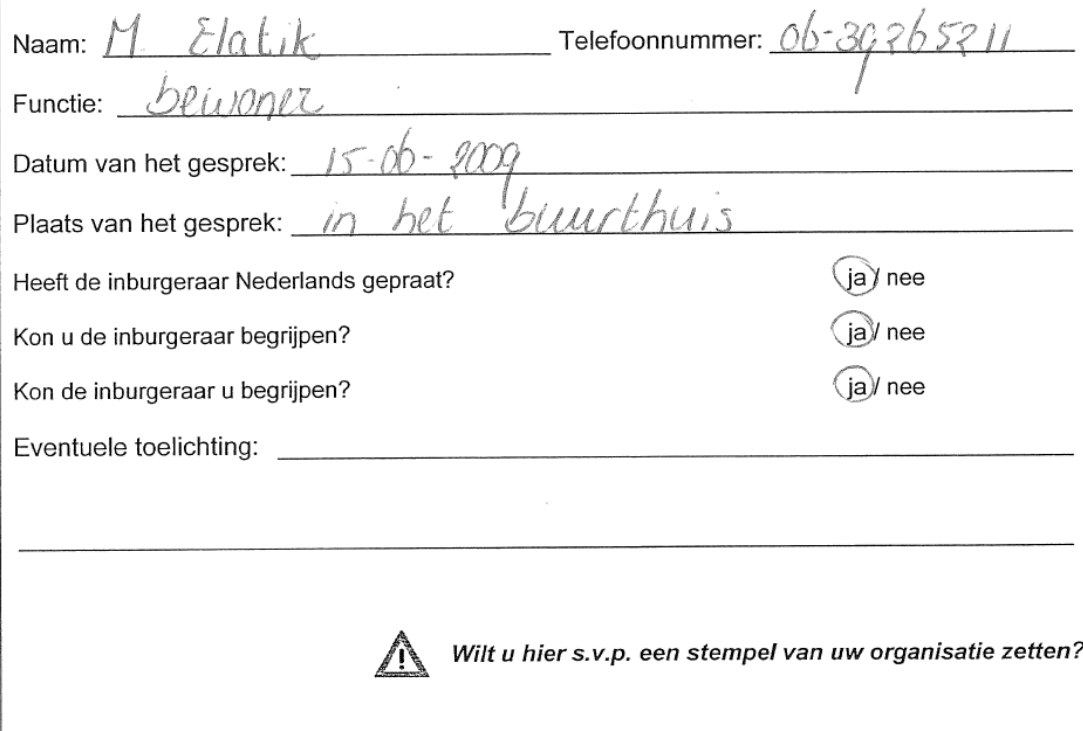 Naam: M. Elatik Telefoonnummer: 06-39265211
Functie: bewoner
Datum van het gesprek: 15-06-2009
Plaats van het gesprek: in het buurthuis
Heeft de inburgeraar Nederlands gepraat? ja / nee
Kon u de inburgeraar begrijpen? ja / nee
Kon de inburgeraar u begrijpen? ja / nee
Eventuele toelichting:
Wilt u hier s.v.p. een stempel van uw organisatie zetten?